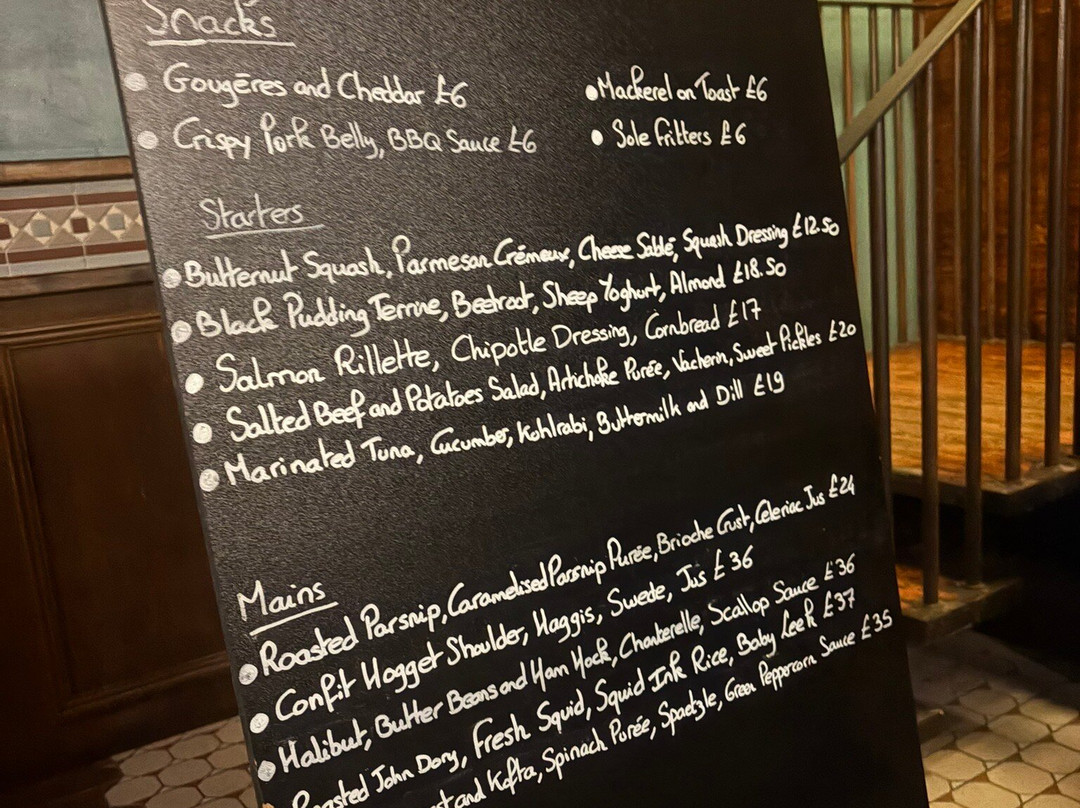 Snacks
• Gougēres and Cheddar £6
• Mackerel on Toast £6
• Crispy Pork Belly, BBQ Sauce £6
• Sole Fritters £6
Starters
• Butternut Squash, Parmesan Crémeux, Cheese Sablé, Squash Dressing £12.50
• Black Pudding Terrine, Beetroot, Sheep Yoghurt, Almond £18.50
• Salmon Rillette, Chipotle Dressing, Cornbread £17
• Salted Beef and Potatoes Salad, Artichoke Purée, Vacherin, Sweet Pickles £20
• Marinated Tuna, Cucumber, Kohlrabi, Buttermilk and Dill £19
Mains
• Roasted Parsnip, Caramelised Parsnip Purée, Brioche Crust, Celeriac Jus £24
• Confit Hogget Shoulder, Haggis, Swede, Jus £36
• Halibut, Butter Beans and Ham Hock, Chanterelle, Scallop Sauce £36
Roasted John Dory, Fresh Squid, Squid Ink Rice, Baby Leek £37
and Kofta, Spinach Purée, Spaetzle, Green Peppercorn Sauce £35